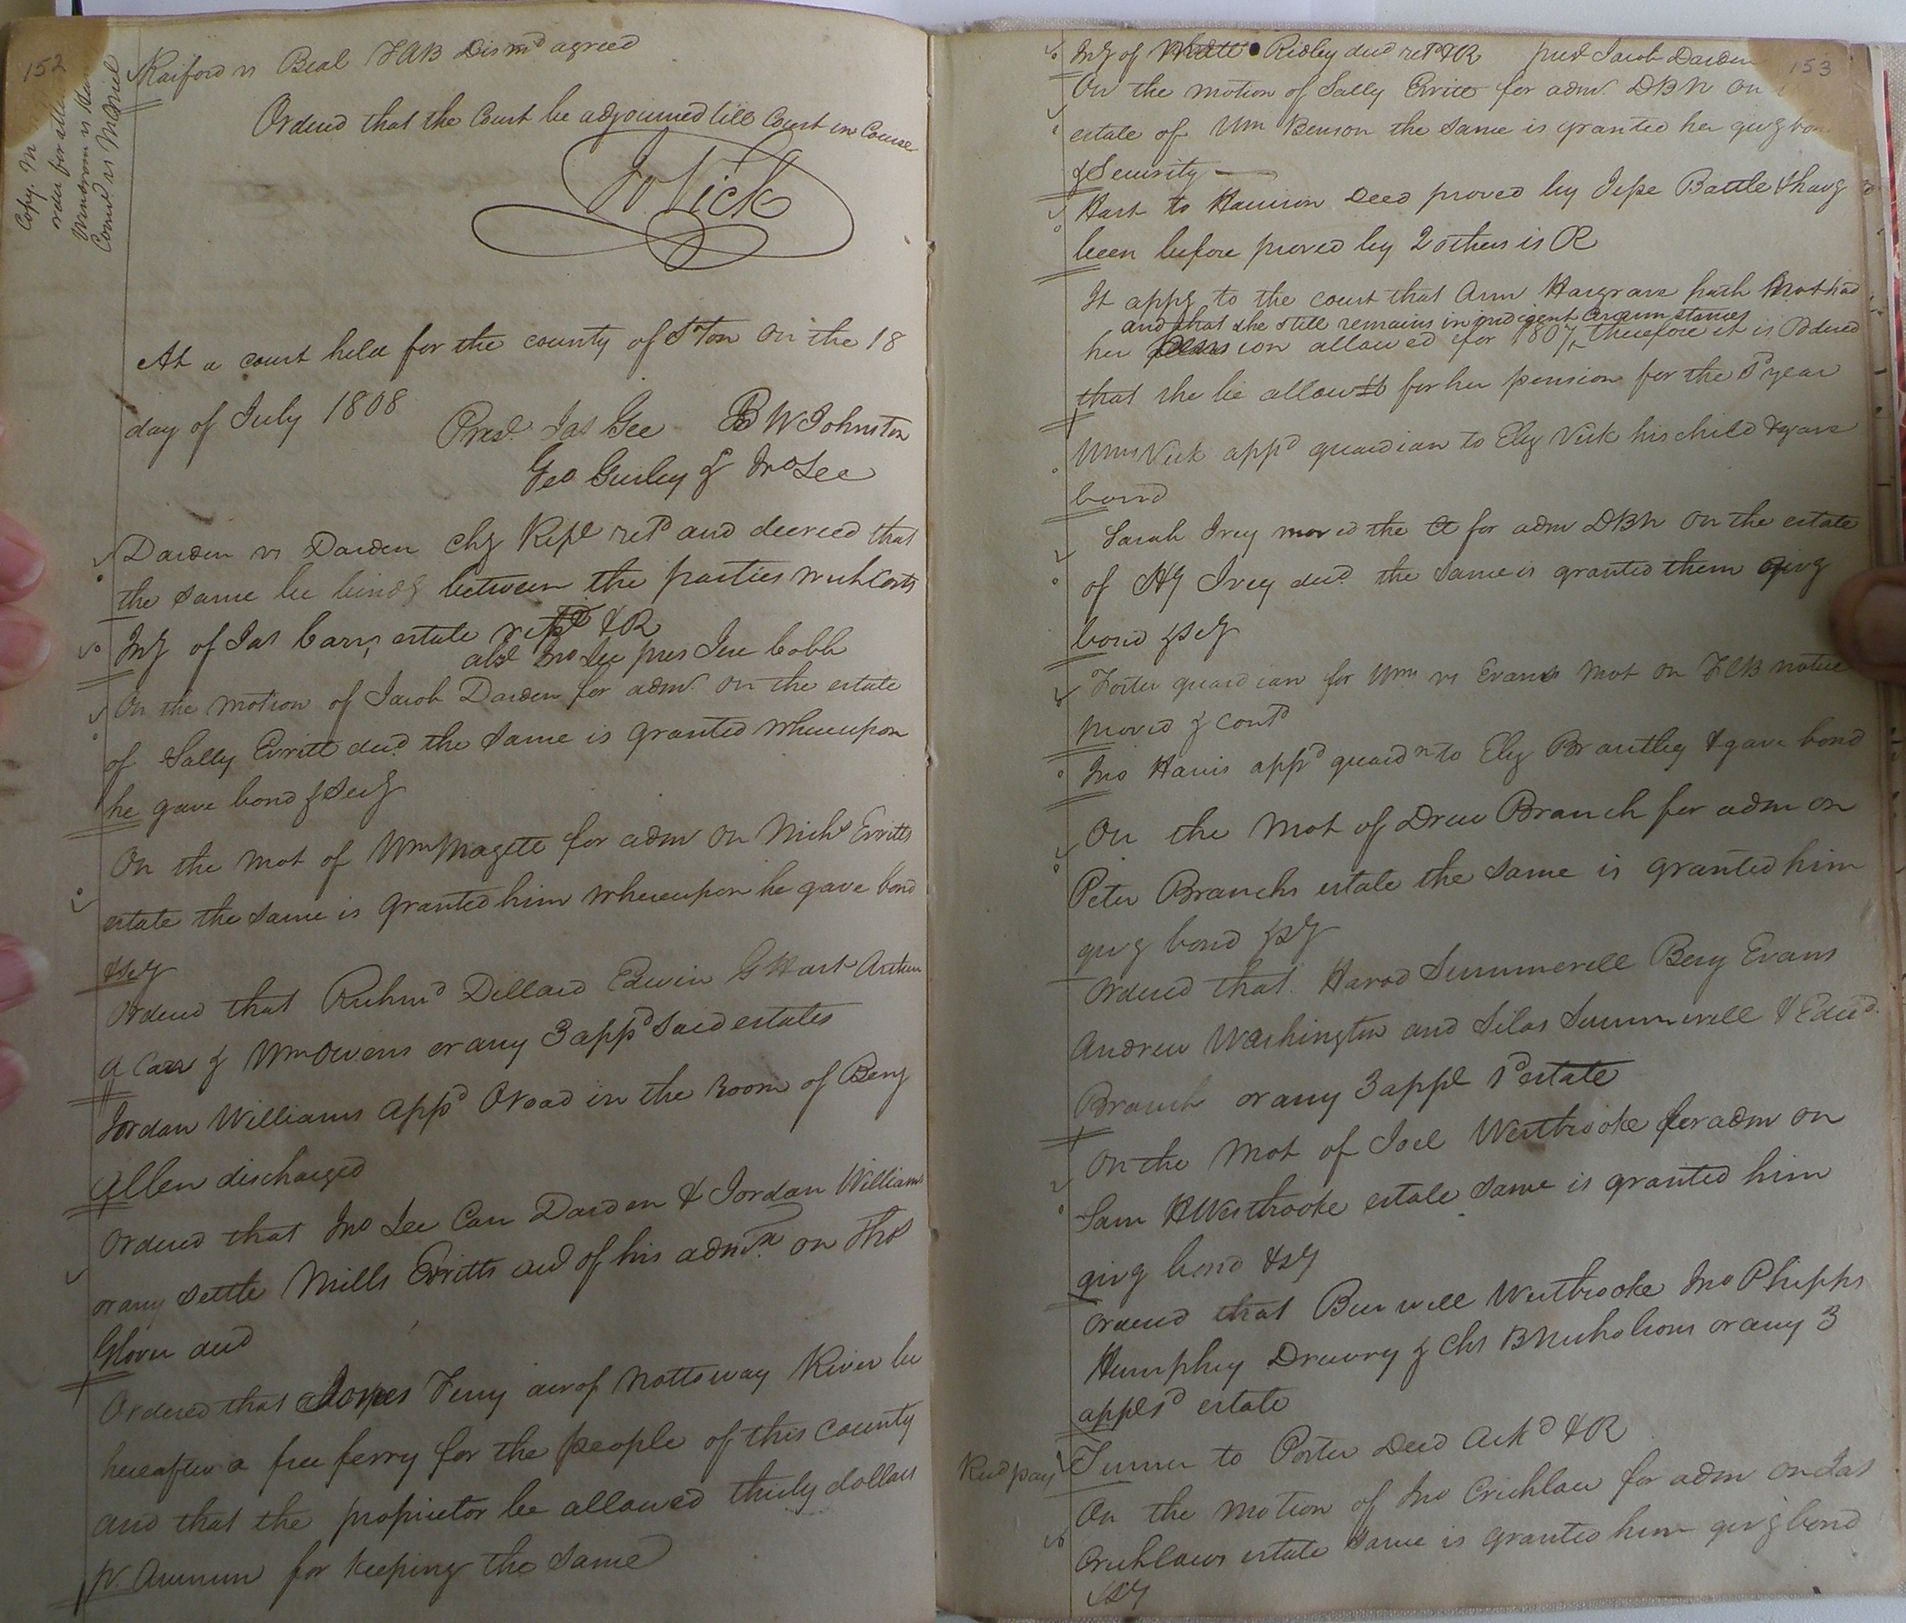 152
Copy. M
order for alld
Windrom vs
Comd vs McNiel
Raiford vs Beal FAB Dismd agreed
Ordered that the Court be adjourned till Court in Course
Jo. Vick
At a court held for the county of S'Ton on the 18
day of July 1808
Prest. Jas Gee B W Johnston
Geo Gurley & Jno Lee
Darden vs Darden Chy Rept retd and decreed that
the same be bindg between the parties with Costs
Invy of Jas Carrs estate retd & R
abst Jno Lee pres Jere Cobb
On the motion of Jacob Darden for adm on the estate
of Sally Evritt decd the same is granted whereupon
he gave bond & Secy
On the mot of Wm Magett for adm on Nichs Evritts
estate the same is granted him whereupon he gave bond
&Scy
Ordered that Richmd Dillard Edwin G Hart Arthur
A Carr & Wm Owens or any 3 appd said estates
Jordan Williams appd Oroad in the room of Benj
Allen discharged
Ordered that Jno Lee Carr Darden & Jordan Williams
or any settle Mills Evritts acd of his admn on Thos
Glover decd
Ordered that Ferry acrof Nottoway River be
hereafter a free ferry for the people of this county
and that the proprietor be allowed thirty dollars
pr. Annum for keeping the same
153
Invy of Ridley decd retd & R prest Jacob Darden
On the motion of Sally Evritt for adm DBN on
estate of Wm Benson the same is granted her givg bon
& Security
Hart to Harrison Deed proved by Jesse Battle & havg
been before proved by 2 others is OR
It appg to the court that Ann Hargrave hath not had
and that she still remains in indigent Circumstances
her pension allowed for 1807, therefore it is Ordered
that she be allow for her pension for the sd year
Wm Vick appd guardian to Eliz Vick his child & gave
bond
Sarah Ivey moved the Ct for adm DBN on the estate
of Hy Ivey decd the same is granted them givg
bond & scy
Porter guardian for Wm vs Evans mot on FCB notice
proved & Contd
Jno Harris appd guardn to Eliz Brantley & gave bond
On the Mot of Drew Branch for adm on
Peter Branchs estate the same is granted him
givg bond & scy
Ordered that Harod Summerell Benj Evans
Andrew Washington and Silas Summerell & Edwd.
Branch or any 3 appd sd estate
On the Mot of Joel Westbrooke for adm on
Sam H Westbrooke estate same is granted him
givg bond & scy
Ordered that Burwell Westbrooke Jno Phipps
Humphrey Drewry & Chs B Nicholson or any 3
appd sd estate
Turner to Porter Deed Ackd & R
On the motion of Jno Crichlow for adm on Jas
Crichlows estate same is granted him givg bond
&scy